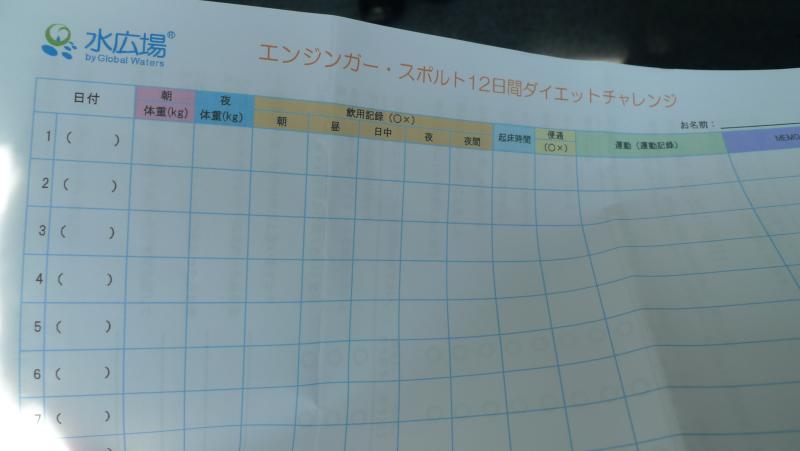 水広場®
by Global Waters
エンジンガー・スポルト12日間ダイエットチャレンジ
お名前：
日付
朝
体重(kg)
夜
体重(kg)
飲用記録（○×）
朝 昼 日中 夜 夜間
起床時間
便通
(○×)
運動（運動記録）
MEMO
1 ( )
2 ( )
3 ( )
4 ( )
5 ( )
6 ( )
7 ( )